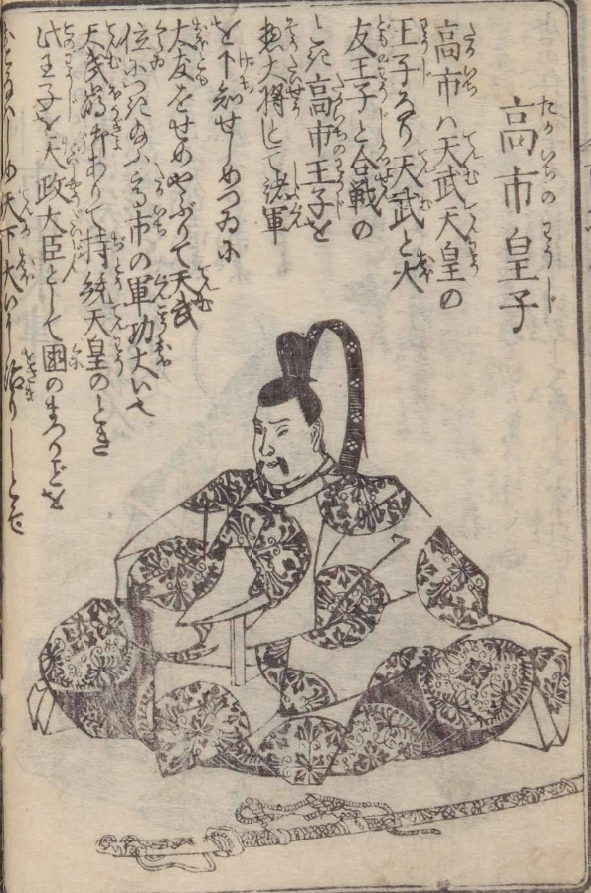 高市皇子
高市ハ天武天皇の
王子なり天武と大
友王子と合戦の
とき高市王子を
惣大将として諸軍
を下知せしめつゐに
大友をせめやぶりて天武
位につき給ふ高市の軍功大い也
天武崩御ありて持統天皇のとき
此王子を太政大臣として國のまつりごとを
天下大いに治りしとぞ